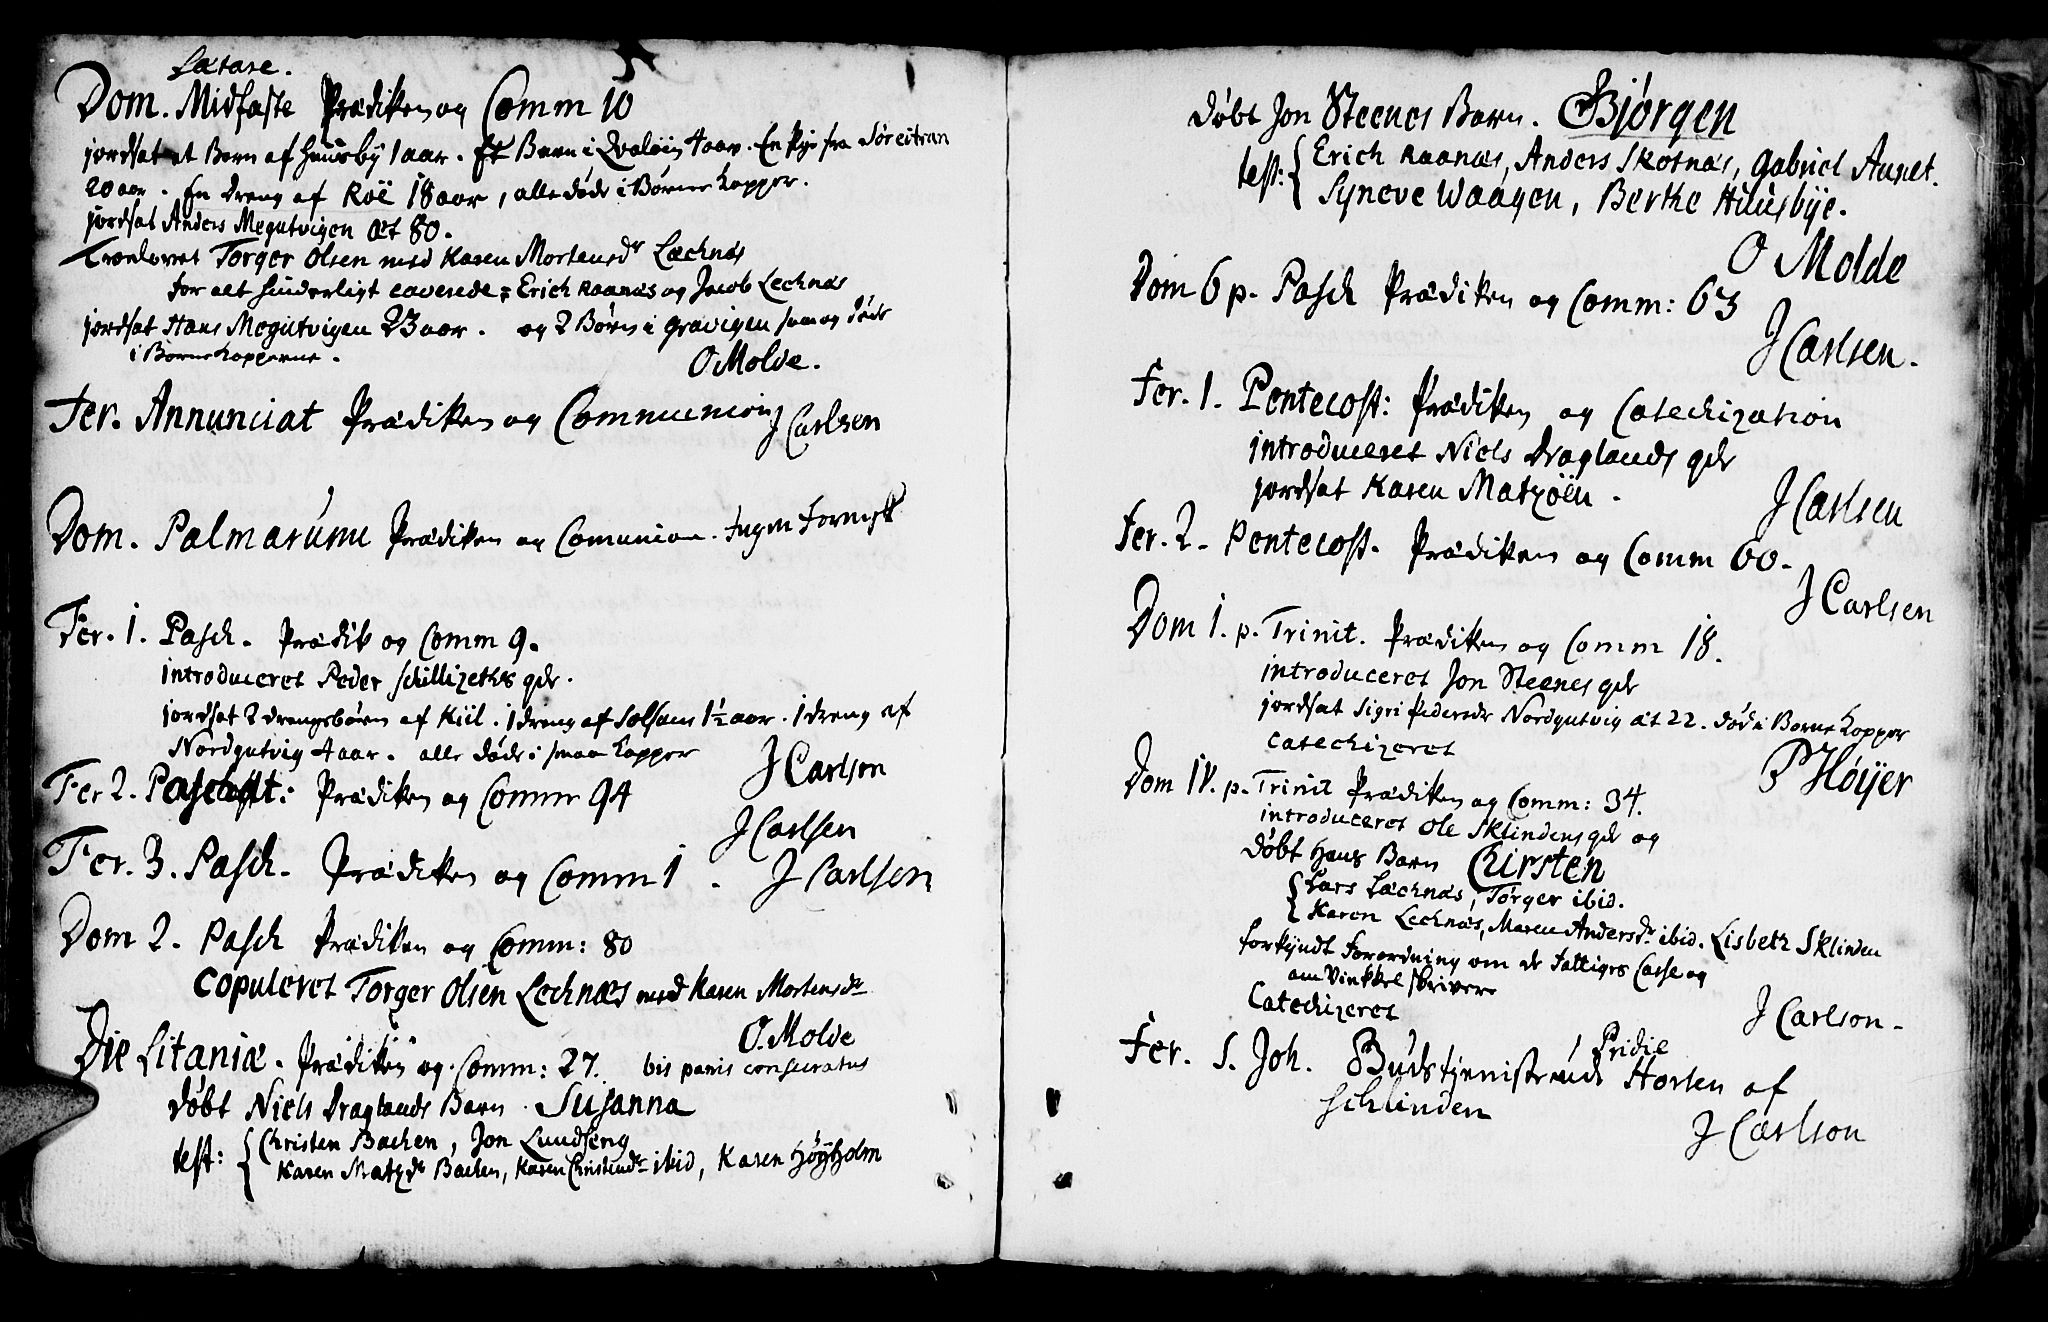 Lætare.
Dom. Midfaste Prædiken og Comm 10
jordsat et Barn af Huusby 1 aar. Et Barn i Qvaløin 4 aar. En Pige fra Søreitran
20 aar. En Dreng af Roe 18 aar, alle døde i Børne Kopper.
jordsat Anders Megutvigen æt 80.
Trovlovet Torger Olsen med Karen Mortensdr Lechnæs
for alt hinderligt caverede: Erich Raanæs og Jacob Lechnæs
jordsat Hans Megutvigen 23 aar. og 2 Børn i Gravigen som og døde
i Børne Kopperne.
O Molde.
Fer. Annunciat Prædiken og Communion
J Carlsen
Dom. Palmarum Prædiken og Comunion. Ingen
Fer. 1. Pasch. Prædik og Comm 9.
introduceret Peder gdr.
jordsat 2 drengebørn af Kiil. 1 dreng af Solfans 1½ aar. 1 dreng af
Nordgutvig 4 aar. alle døde i smaa kopper
J Carlson
Fer 2. Prædiken og Comm 94
J Carlsen
Fer. 3. Pasch. Prædiken og Comm 1.
J Carlsen
Dom 2. Pasch Prædiken og Comm: 80
Copuleret Torger Olsen Lechnæs med Karen Mortensdr
O. Molde
Die Litaniæ. Prædiken og Comm: 27. bis panis consecratus
døbt Niels Draglands Barn. Susanna
test: { Christen Bachen, Jon Lundseng
Karen Matzdr Bachen, Karen Christensdr ibid, Karen Høgholm
døbt Jon Steenes Barn. Bjørgen
test: { Erich Raanæs, Anders Skotnæs, Gabriel Aunet.
Syneve Waagen, Berthe Huusbye.
O Molde
Dom 6 p. Pasch Prædiken og Comm: 63
J Carlsen.
Fer. 1. Pentecost: Prædiken og Catechization
introduceret Niels Draglands gdr
jordsat Karen Matzøen.
J Carlsen
Fer. 2. Pentecost. Prædiken og Comm 60.
J Carlsen
Dom 1. p. Trinit. Prædiken og Comm 18.
introduceret Jon Steenes gdr
jordsat Sigri Pedersdr Nordgutvig æt 22. død i Børne Kopper
Catechizeret
P Høyer
Dom IV. p. Trinit Prædiken og Comm: 34.
introduceret Ole Sklindens gdr og
døbt Hans Barn Chirsten
{ Lars Lechnæs, Torger ibid.
Karen Lechnæs, Maren Andersdr ibid. Lisbeth Sklinden
forkyndt Forordning om de Fattiges Casse og
om Vinkkel skrivere
Catechizeret
J Carlson.
Fer. S. Joh. Pridie
Horsen af
Schlinden
J Carlson